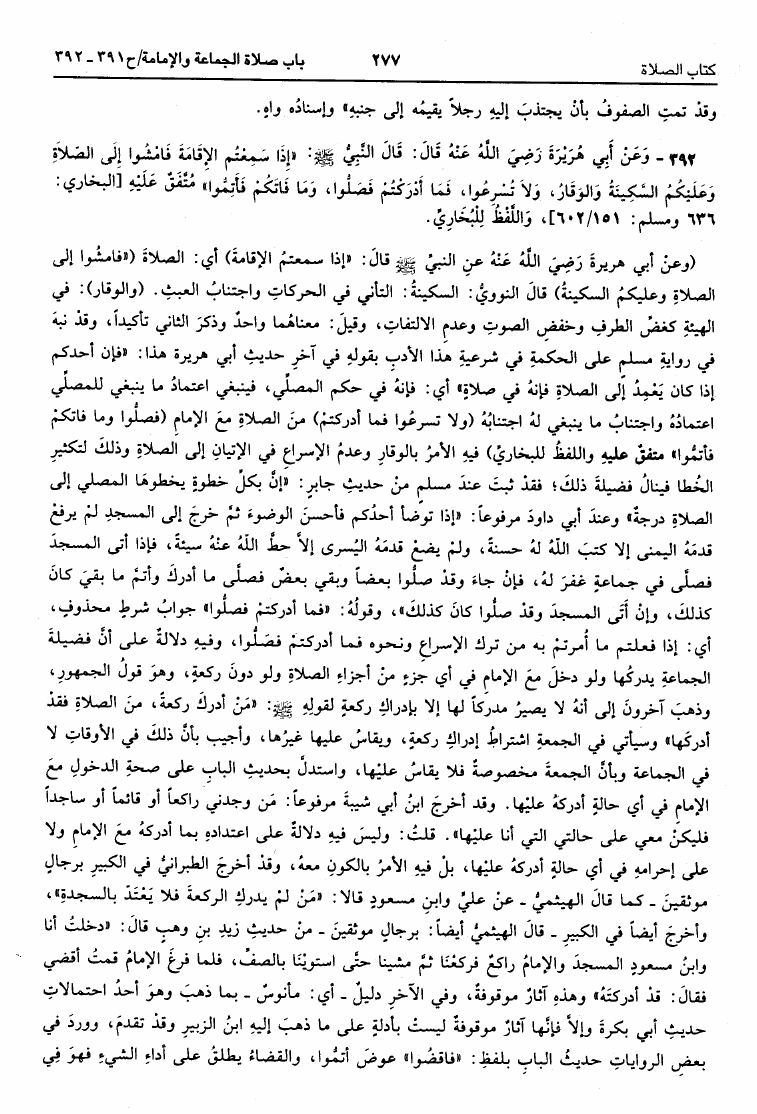 كتاب الصلاة ٢٧٧ باب صلاة الجماعة والإمامة/ح٣٩١ - ٣٩٢
وقدْ تمتِ الصفوفُ بأنْ يجتذبَ إليهِ رجلاً يقيمُه إلى جنبهِ» وإسنادُه واهٍ.
٣٩٢ - وَعَنْ أَبِي هُرَيْرَةَ رَضِيَ اللَّهُ عَنْهُ قَالَ: قَالَ النَّبِيُّ ﷺ: «إِذَا سَمِعْتُم الإِقَامَةَ فَامْشُوا إِلَى الصَّلاَةِ
وَعَلَيْكُمُ السَّكِينَةُ وَالوَقَارُ، وَلاَ تُسْرِعُوا، فَمَا أَدْرَكْتُمْ فَصَلُّوا، وَمَا فَاتَكُمْ فَأَتِمُّوا» مُتَّفَقٌ عَلَيْهِ [البخاري:
٦٣٦ ومسلم: ٦٠٢/١٥١]، وَاللَّفْظُ لِلْبُخَارِيِّ.
(وعنْ أبي هريرةَ رَضِيَ اللَّهُ عَنْهُ عنِ النبيِّ ﷺ قالَ: «إذا سمعتمُ الإقامةَ) أي: الصلاةَ («فامشُوا إلى
الصلاةِ وعليكمُ السكينةُ) قالَ النوويُّ: السكينةُ: التأني في الحركاتِ واجتنابُ العبثِ. (والوقار): في
الهيئةِ كغضِّ الطرفِ وخفضِ الصوتِ وعدمِ الالتفاتِ، وقيلَ: معناهُما واحدٌ وذكرَ الثاني تأكيداً، وقد نبهَ
في روايةِ مسلمٍ على الحكمةِ في شرعيةِ هذا الأدبِ بقولهِ في آخرِ حديثِ أبي هريرة هذا: «فإن أحدكم
إذا كان يَعْمِدُ إلى الصلاةِ فإنهُ في صلاةٍ» أي: فإنهُ في حكم المصلِّي، فينبغي اعتمادُ ما ينبغي للمصلِّي
اعتمادُهُ واجتنابُ ما ينبغي لهُ اجتنابُهُ (ولا تسرعُوا فما أدركتمْ) منَ الصلاةِ معَ الإمامِ (فصلُّوا وما فاتكمْ
فأتمُّوا» متفقٌ عليهِ واللفظُ للبخاريِّ) فيهِ الأمرُ بالوقارِ وعدمُ الإسراعِ في الإتيانِ إلى الصلاةِ وذلكَ لتكثيرِ
الخُطا فينالُ فضيلةَ ذلكَ؛ فقدْ ثبتَ عندَ مسلمٍ منْ حديثِ جابرٍ: «إنَّ بكلِّ خطوةٍ يخطوهَا المصلي إلى
الصلاةِ درجةً» وعندَ أبي داودَ مرفوعاً: «إذا توضأ أحدُكم فأحسنَ الوضوءَ ثمَّ خرجَ إلى المسجدِ لمْ يرفعْ
قدمَهُ اليمنى إلا كتبَ اللَّهُ لهُ حسنةً، ولمْ يضعْ قدمَهُ اليُسرى إلاَّ حطَّ اللَّهُ عنْهُ سيئةً، فإذا أتى المسجدَ
فصلَّى في جماعةٍ غفرَ لهُ، فإنْ جاءَ وقدْ صلُّوا بعضاً وبقي بعضٌ فصلَّى ما أدركَ وأتمَّ ما بقيَ كانَ
كذلكَ، وإنْ أتَى المسجدَ وقد صلُّوا كانَ كذلكَ»، وقولُهُ: «فما أدركتمْ فصلُّوا» جوابُ شرطٍ محذوفٍ،
أي: إذا فعلتم ما أُمرتمْ به من تركِ الإسراعِ ونحوِه فما أدركتمْ فصَلُّوا، وفيهِ دلالةٌ على أنَّ فضيلةَ
الجماعةِ يدركُها ولو دخلَ معَ الإمامِ في أي جزءٍ منْ أجزاءِ الصلاةِ ولو دونَ ركعةٍ، وهوَ قولُ الجمهورِ،
وذهبَ آخرونَ إلى أنهُ لا يصيرُ مدركاً لها إلا بإدراكِ ركعةٍ لقولِهِ ﷺ: «مَنْ أدركَ ركعةً، منَ الصلاةِ فقدْ
أدركَها» وسيأتي في الجمعةِ اشتراطُ إدراكِ ركعةٍ، ويقاسُ عليها غيرُها، وأجيب بأنَّ ذلكَ في الأوقاتِ لا
في الجماعة وبأنَّ الجمعةَ مخصوصةٌ فلا يقاسُ عليْها، واستدلَّ بحديثِ البابِ على صحةِ الدخولِ معَ
الإمامِ في أي حالةٍ أدركهُ عليْها. وقد أخرجَ ابنُ أبي شيبةَ مرفوعاً: مَن وجدني راكعاً أو قائماً أو ساجداً
فليكنْ معي على حالتي التي أنا عليْها». قلتُ: وليسَ فيهِ دلالةٌ على اعتدادِهِ بما أدركهُ معَ الإمامِ ولا
على إحرامهِ في أي حالةٍ أدركهُ عليْها، بلْ فيهِ الأمرُ بالكونِ معهُ، وقدْ أخرجَ الطبرانيُّ في الكبيرِ برجالٍ
موثقينَ - كما قالَ الهيثميُّ - عنْ عليٍّ وابنِ مسعودٍ قالا: «مَنْ لمْ يدركِ الركعةَ فلا يَعْتَدْ بالسجدةِ»،
وأخرجَ أيضاً في الكبيرِ - قالَ الهيثميُّ أيضاً: برجالٍ موثقينَ - منْ حديثِ زيدِ بنِ وهبٍ قالَ: «دخلتُ أنا
وابنُ مسعودٍ المسجدَ والإمامُ راكعٌ فركعْنَا ثمَّ مشينا حتَّى استويْنَا بالصفِّ، فلما فرغَ الإمامُ قمتُ أقضي
فقالَ: قدْ أدركتَهُ» وهذهِ آثارٌ موقوفةٌ، وفي الآخرِ دليلٌ - أي: مأنوسٌ - بما ذهبَ وهوَ أحدُ احتمالاتِ
حديثِ أبي بكرةَ وإلاَّ فإنَّها آثارٌ موقوفةٌ ليستْ بأدلةٍ على ما ذهبَ إليهِ ابنُ الزبيرِ وقد تقدمَ، ووردَ في
بعضِ الرواياتِ حديثُ البابِ بلفظِ: «فاقضُوا» عوضَ أتمُّوا، والقضاءُ يطلقُ على أداءِ الشيءِ فهوَ فِي